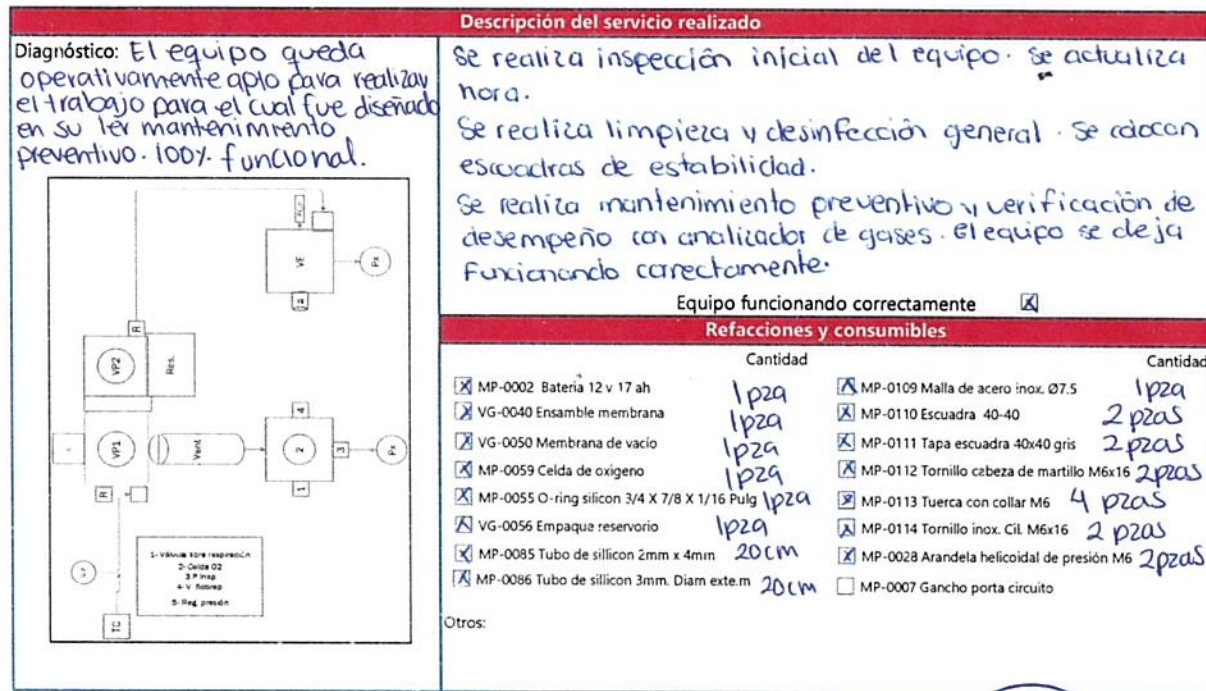 Descripción del servicio realizado
Diagnóstico: El equipo queda
operativamente apto para realizar
el trabajo para el cual fue diseñado
en su 1er mantenimiento
preventivo. 100% funcional.
Se realiza inspección inicial del equipo. Se actualiza
hora.
Se realiza limpieza y desinfección general. Se colocan
escuadras de estabilidad.
Se realiza mantenimiento preventivo y verificación de
desempeño con analizador de gases. El equipo se deja
Funcionando correctamente.
Equipo funcionando correctamente
R
VP2
Res.
VE
Px
VP1
R
Vent
4
2
1
3
Px
TC
1- Válvula libre respiración
2- Celda O2
3 P Insp
4- V. Sobrep
5- Reg. presión
Refacciones y consumibles
Cantidad
MP-0002 Bateria 12 v 17 ah 1pza
VG-0040 Ensamble membrana 1pza
VG-0050 Membrana de vacio 1pza
MP-0059 Celda de oxigeno 1pza
MP-0055 O-ring silicon 3/4 X 7/8 X 1/16 Pulg 1pza
VG-0056 Empaque reservorio 1pza
MP-0085 Tubo de sillicon 2mm x 4mm 20cm
MP-0086 Tubo de sillicon 3mm. Diam exte.m 20cm
Cantidad
MP-0109 Malla de acero inox. Ø7.5 1pza
MP-0110 Escuadra 40-40 2 pzas
MP-0111 Tapa escuadra 40x40 gris 2pzas
MP-0112 Tornillo cabeza de martillo M6x16 2pzas
MP-0113 Tuerca con collar M6 4 pzas
MP-0114 Tornillo inox. Cil. M6x16 2 pzas
MP-0028 Arandela helicoidal de presión M6 2pzas
MP-0007 Gancho porta circuito
Otros: